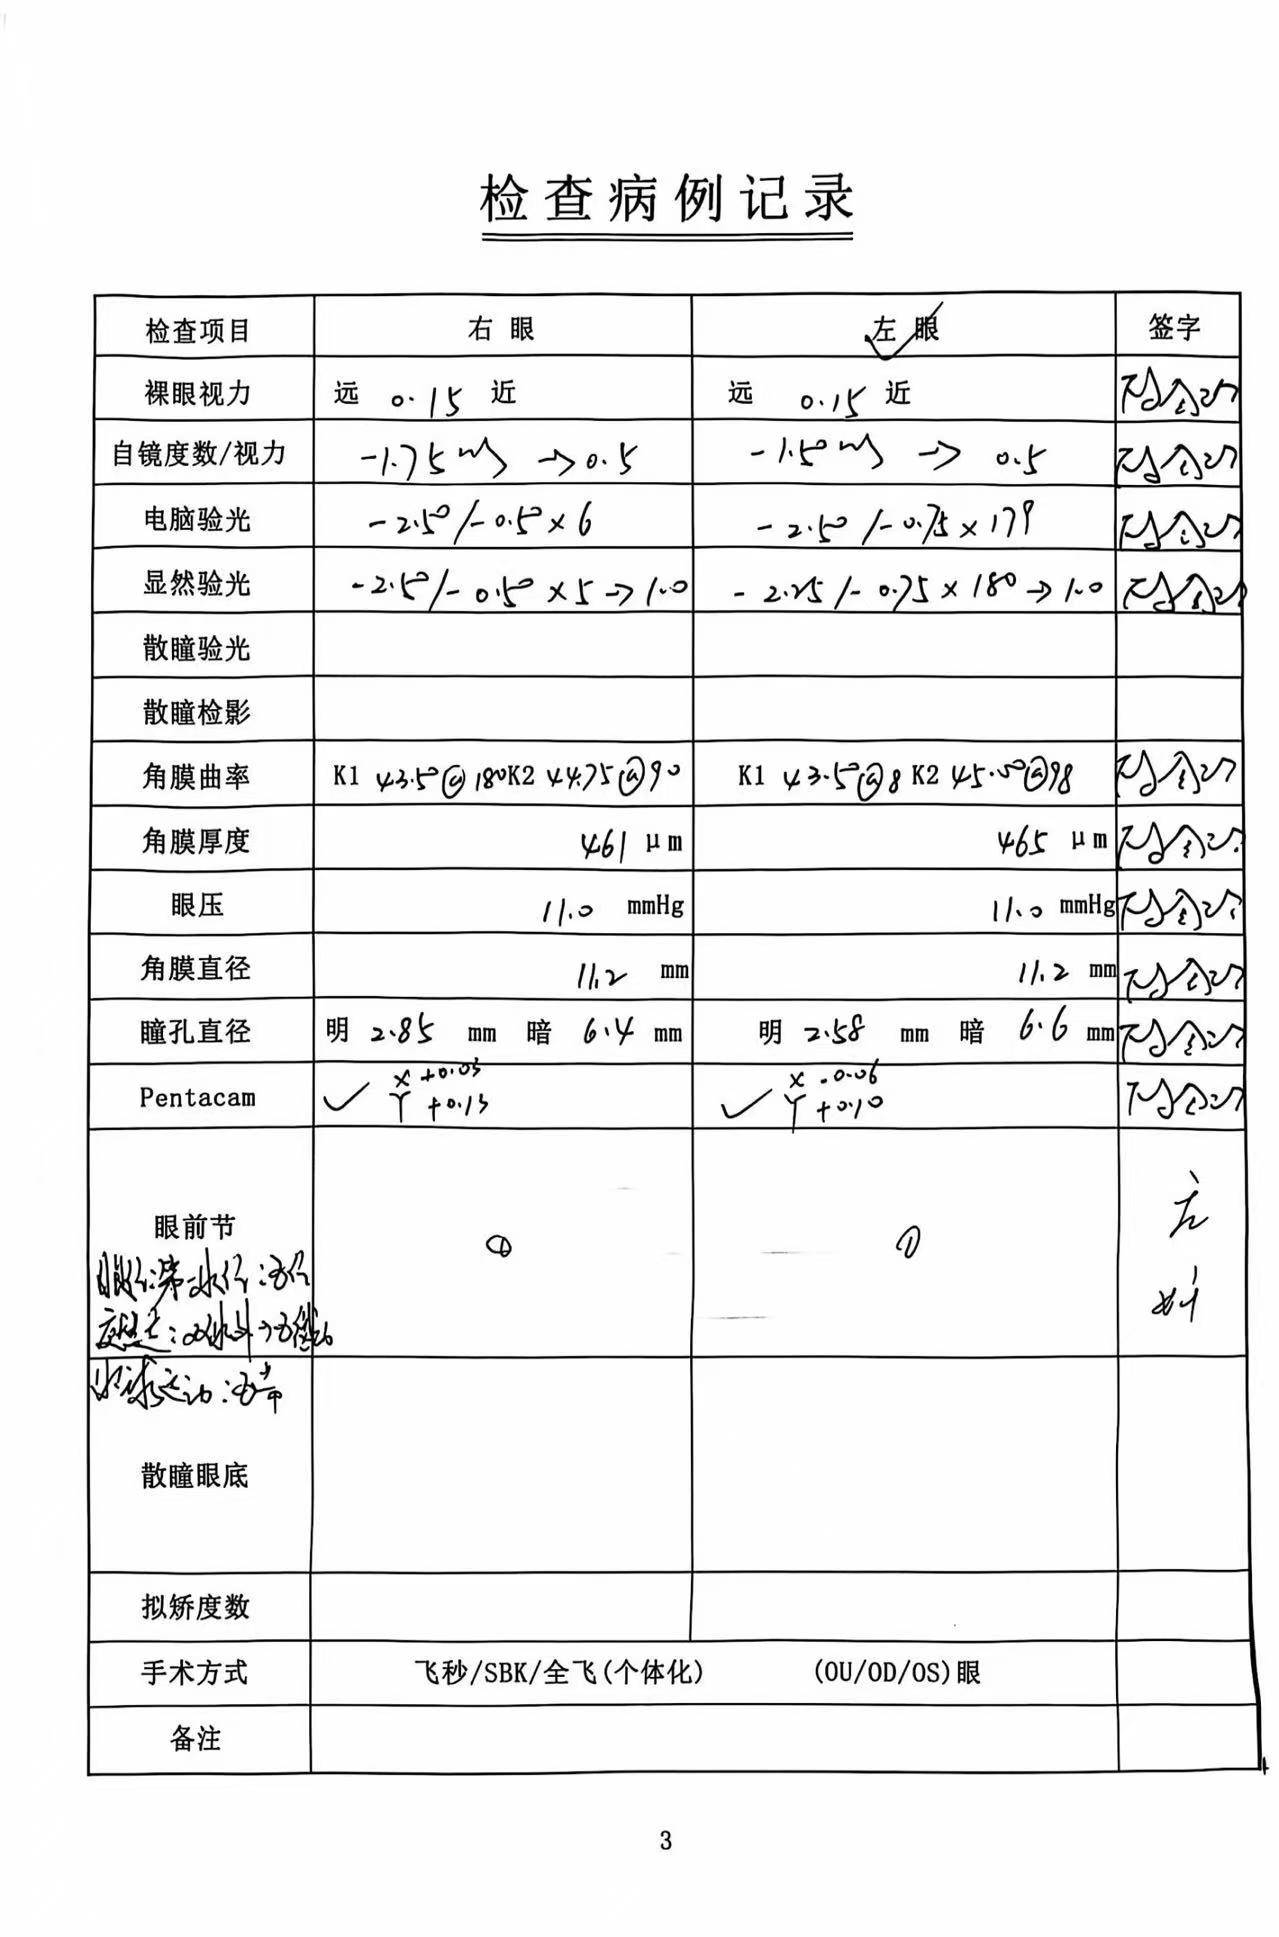 检查病例记录
检查项目 右 眼 左 眼 签字
裸眼视力 远 0.15 近 远 0.15 近
自镜度数/视力 -1.75 →0.5 -1.50 → 0.5
电脑验光 -2.50/-0.50×6 -2.50/-0.75×179
显然验光 -2.50/-0.50×5→1.0 -2.25/-0.75×180→1.0
散瞳验光
散瞳检影
角膜曲率 K1 43.50@180 K2 44.75@90 K1 43.50@8 K2 45.00@98
角膜厚度 461 μm 465 μm
眼压 11.0 mmHg 11.0 mmHg
角膜直径 11.2 mm 11.2 mm
瞳孔直径 明 2.85 mm 暗 6.4 mm 明 2.58 mm 暗 6.6 mm
Pentacam ✓ X +0.03 ✓ X -0.06
Y +0.13 Y +0.10
眼前节
散瞳眼底
拟矫度数
手术方式 飞秒/SBK/全飞(个体化) (OU/OD/OS)眼
备注
3